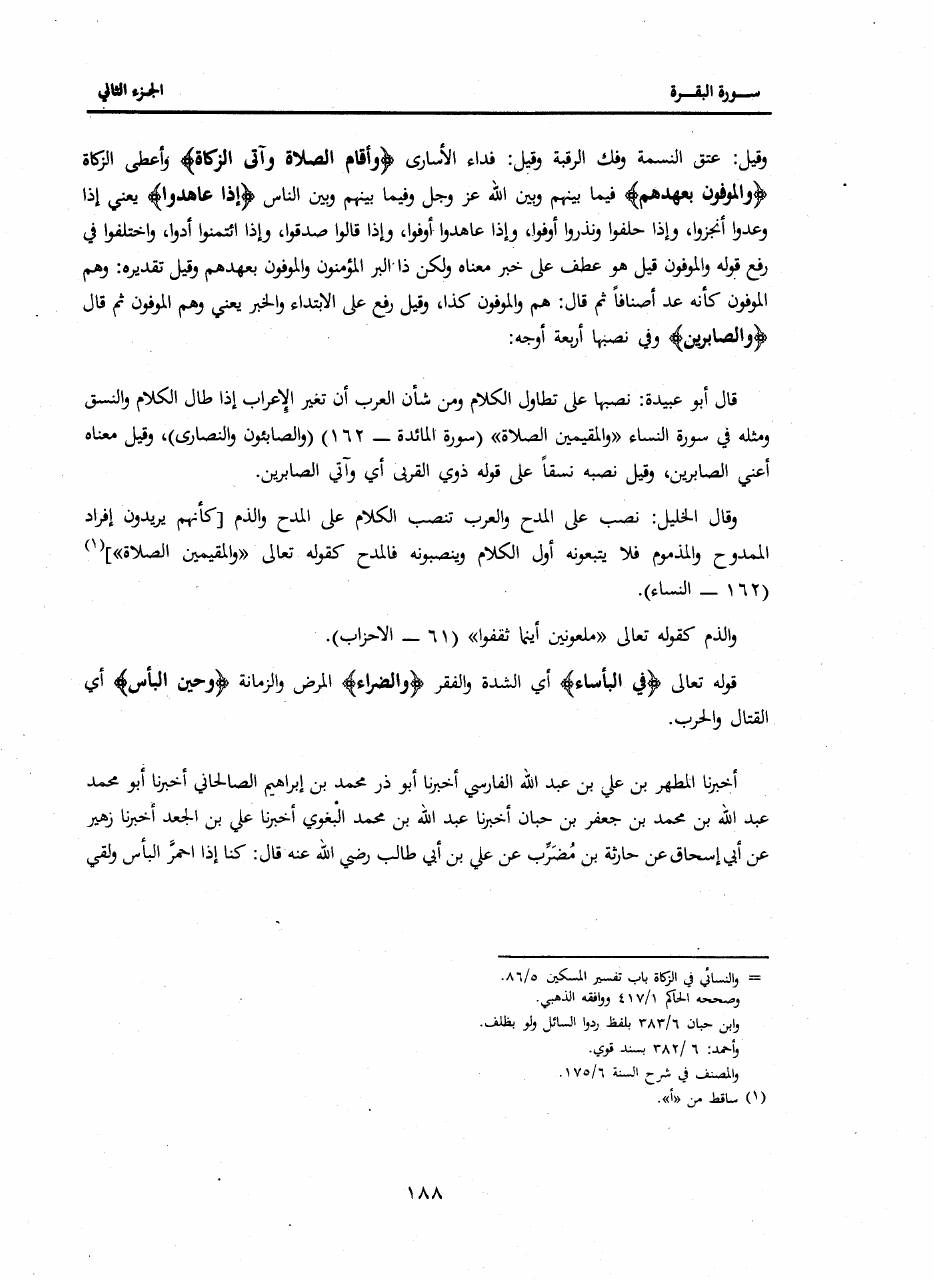 سورة البقرة
الجزء الثاني
وقيل: عتق النسمة وفك الرقبة وقيل: فداء الأسارى ﴿وأقام الصلاة وآتى الزكاة﴾ وأعطى الزكاة
﴿والموفون بعهدهم﴾ فيما بينهم وبين الله عز وجل وفيما بينهم وبين الناس ﴿إذا عاهدوا﴾ يعني إذا
وعدوا أنجزوا، وإذا حلفوا ونذروا أوفوا، وإذا عاهدوا أوفوا، وإذا قالوا صدقوا، وإذا ائتمنوا أدوا، واختلفوا في
رفع قوله والموفون قيل هو عطف على خبر معناه ولكن ذا البر المؤمنون والموفون بعهدهم وقيل تقديره: وهم
الموفون كأنه عد أصنافاً ثم قال: هم والموفون كذا، وقيل رفع على الابتداء والخبر يعني وهم الموفون ثم قال
﴿والصابرين﴾ وفي نصبها أربعة أوجه:
قال أبو عبيدة: نصبها على تطاول الكلام ومن شأن العرب أن تغير الإعراب إذا طال الكلام والنسق
ومثله في سورة النساء «والمقيمين الصلاة» (سورة المائدة ــ ١٦٢) (والصابئون والنصارى)، وقيل معناه
أعني الصابرين، وقيل نصبه نسقاً على قوله ذوي القربى أي وآتي الصابرين.
وقال الخليل: نصب على المدح والعرب تنصب الكلام على المدح والذم [كأنهم يريدون إفراد
الممدوح والمذموم فلا يتبعونه أول الكلام وينصبونه فالمدح كقوله تعالى «والمقيمين الصلاة»](١)
(١٦٢ ــ النساء).
والذم كقوله تعالى «ملعونين أينما ثقفوا» (٦١ ــ الاحزاب).
قوله تعالى ﴿في البأساء﴾ أي الشدة والفقر ﴿والضراء﴾ المرض والزمانة ﴿وحين البأس﴾ أي
القتال والحرب.
أخبرنا المطهر بن علي بن عبد الله الفارسي أخبرنا أبو ذر محمد بن إبراهيم الصالحاني أخبرنا أبو محمد
عبد الله بن محمد بن جعفر بن حبان أخبرنا عبد الله بن محمد البغوي أخبرنا علي بن الجعد أخبرنا زهير
عن أبي إسحاق عن حارثة بن مُضَرِّب عن علي بن أبي طالب رضي الله عنه قال: كنا إذا احمرَّ البأس ولقي
= والنسائي في الزكاة باب تفسير المسكين ٨٦/٥.
وصححه الحاكم ٤١٧/١ ووافقه الذهبي.
وابن حبان ٣٨٣/٦ بلفظ ردوا السائل ولو بظلف.
وأحمد: ٣٨٢/٦ بسند قوي.
والمصنف في شرح السنة ١٧٥/٦.
(١) ساقط من «أ».
١٨٨